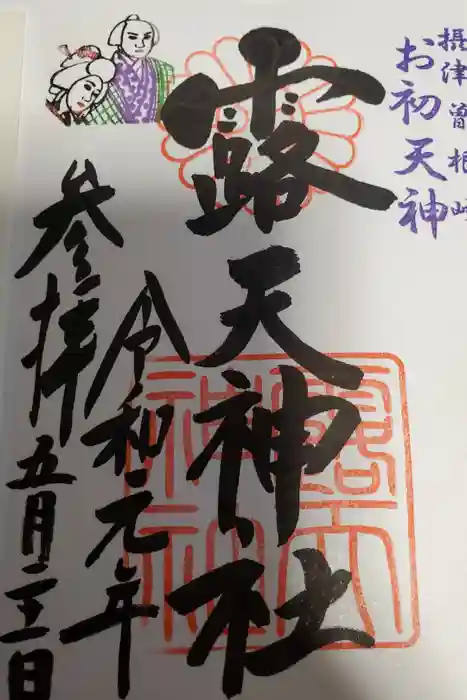 摂津曾根崎
お初天神
露天神社
令和元年
参拝
五月 日
露天
神社